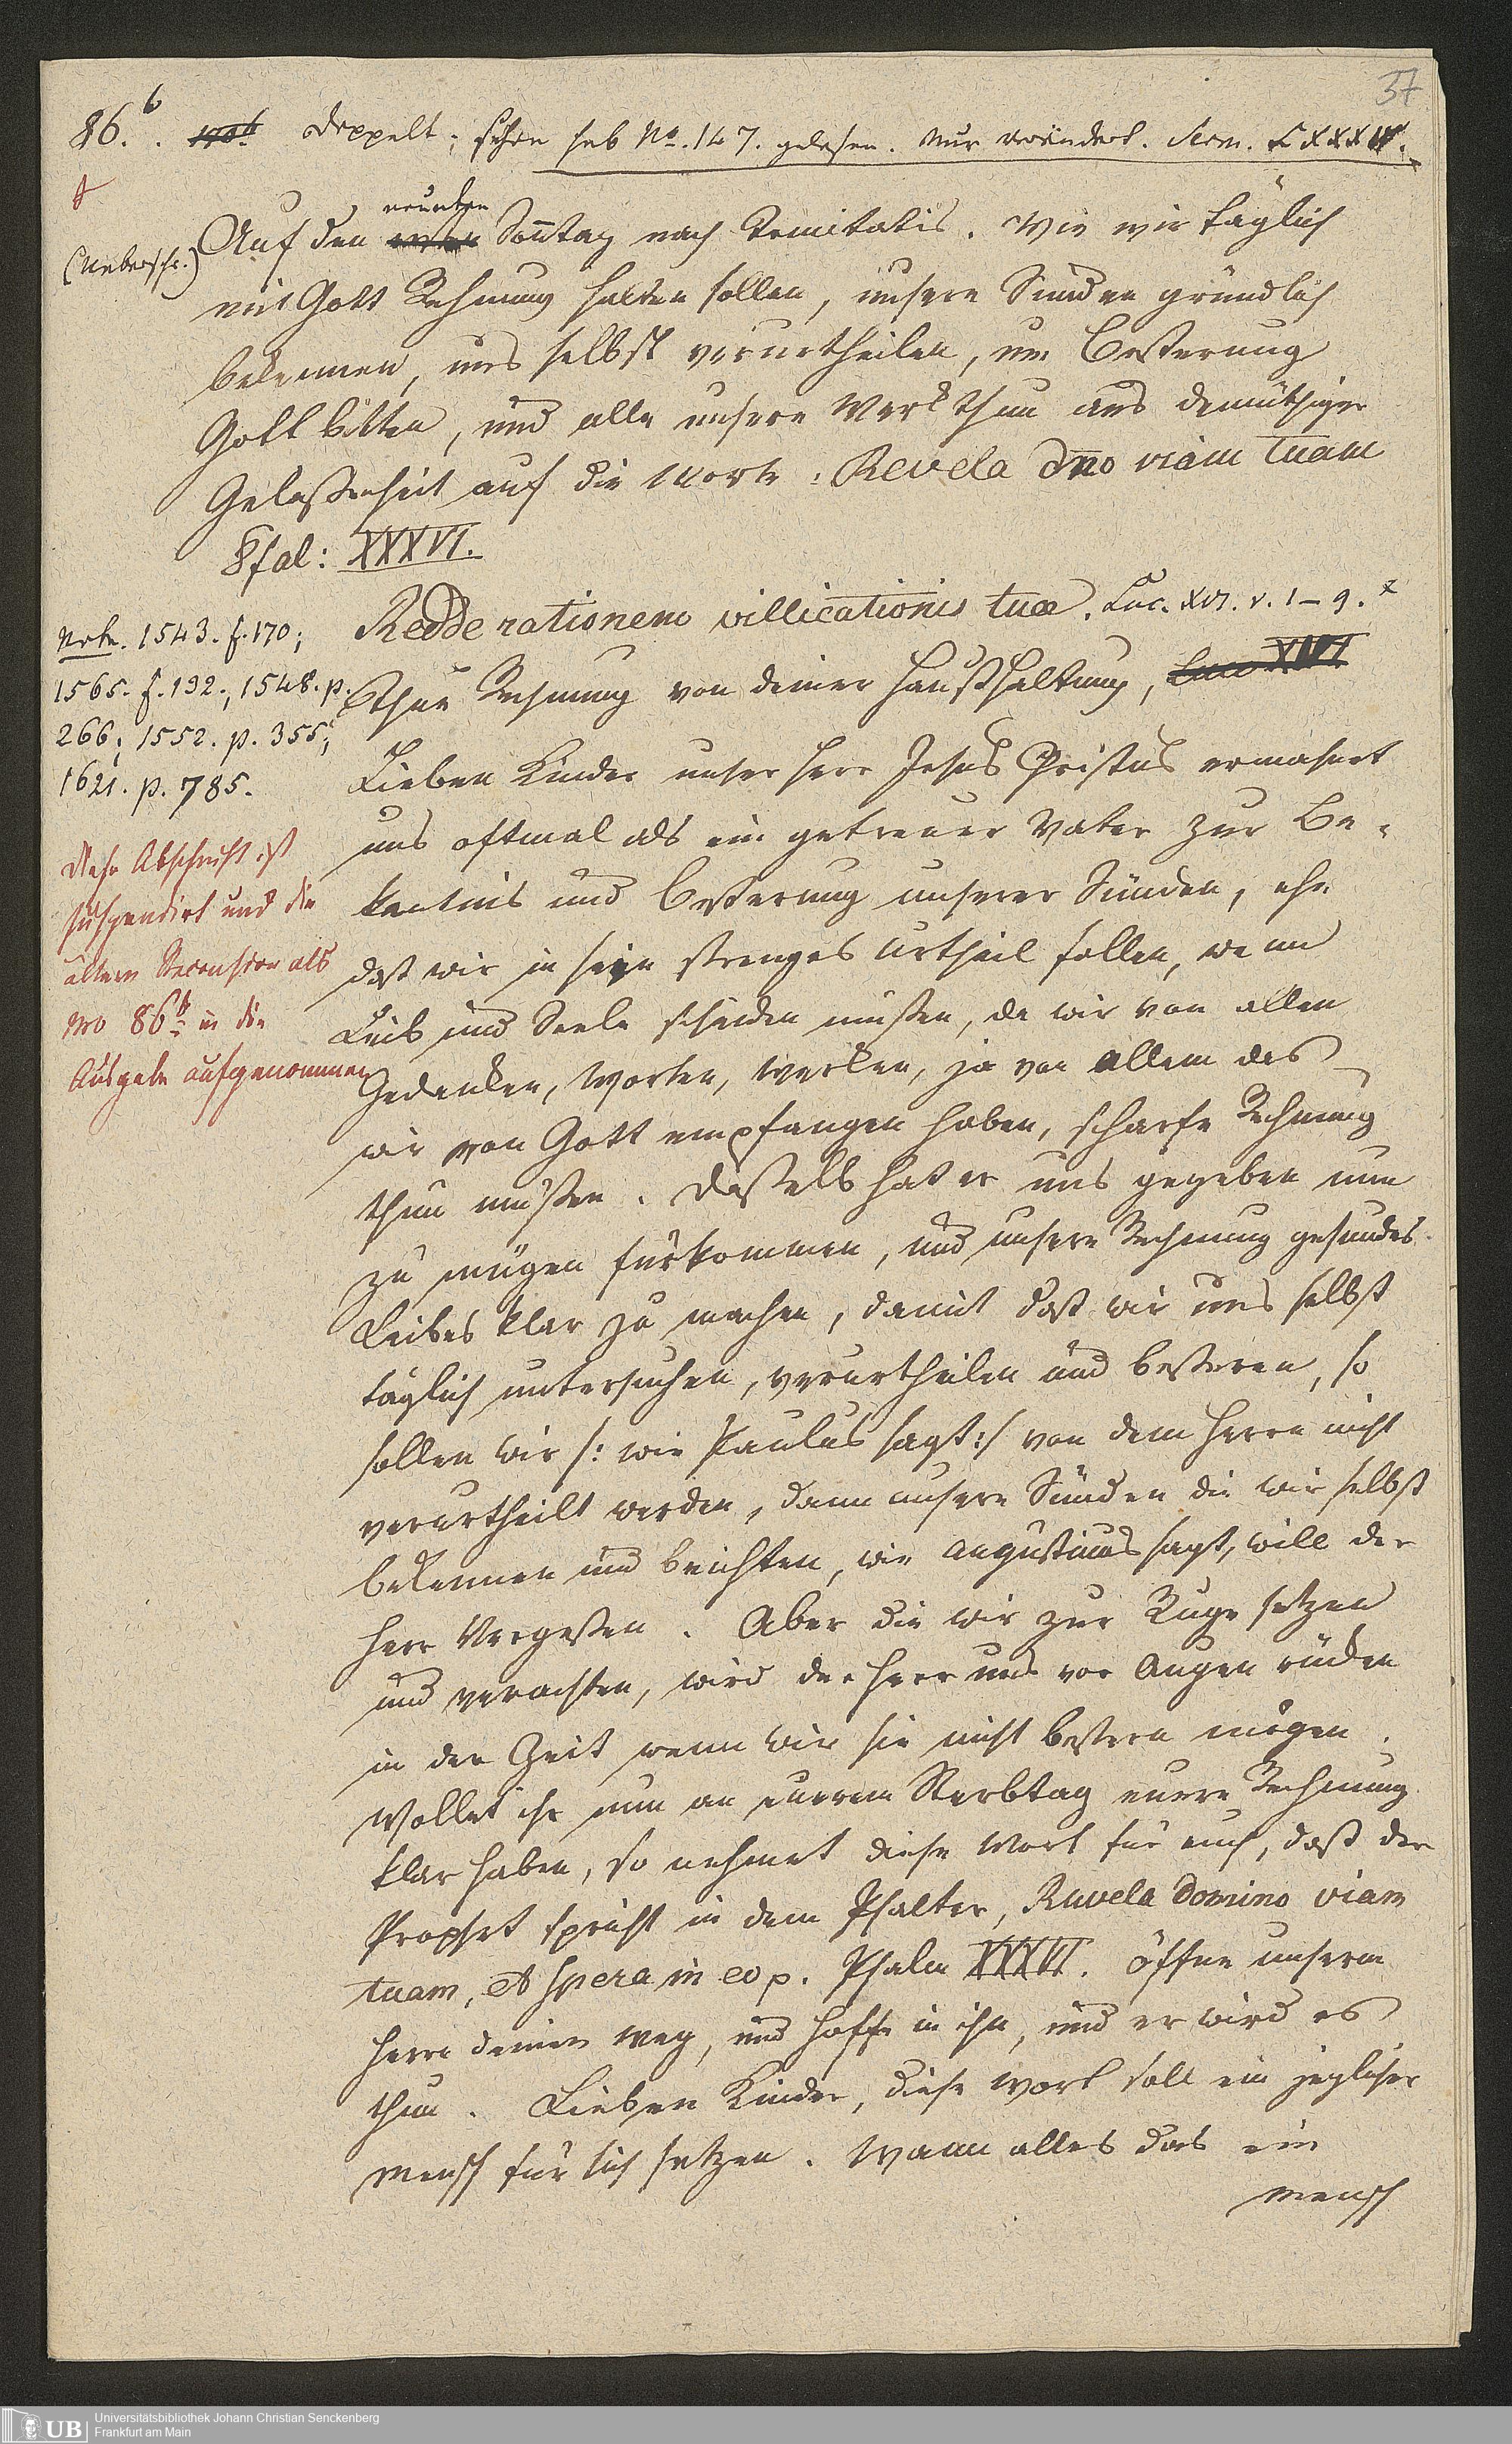 37
86.b. doppelt; schon sub No. 147. gelesen. Nur verändert. Serm. LXXXIV.
Auf den neunten Sontag nach Trinitatis. Wie wir täglich
(Ueberschr.)
mit Gott Rechnung halten sollen, unsere Sünden gründlich
bekennen, uns selbst verurtheilen, um Besserung
Gott bitten, und alle unsere Werk thun aus demüthiger
Gelaßenheit auf die Worte: Revela dno viam tuam
Psal: XXXVI.
Redde rationem villicationis tuæ. Luc. XVI. v. 1-9.
Thue Rechnung von deiner Haußhaltung, Luc XVI
Lieben Kinder unser Herr Jesus Christus ermahnet
uns oftmal als ein getreuer Vater zur Be-
kentnis und Besserung unserer Sünden, ehe
daß wir in sein strenges Urtheil fallen, wenn
Leib und Seele scheiden müßen, da wir von allen
Gedanken, Worten, Werken, ja von allem das
wir von Gott empfangen haben, scharfe Rechnung
thun müßen. Deßhalb hat er uns gegeben nun
zu mügen fürkommen, und unsere Rechnung gesundes
Leibes klar zu machen, damit daß wir uns selbst
täglich untersuchen, verurtheilen und besseren, so
sollen wir /: wie Paulus sagt :/ von dem Herrn nicht
verurtheilt werden, dann unsere Sünden die wir selbst
bekennen und beichten, wie Augustinus sagt, will der
Herr Vergeßen. Aber die wir zur Ruge setzen
und verachten, wird der Herr uns vor Augen rücken
in der Zeit wenn wir sie nicht bessern mögen.
Wollet ihr nun an euerem Sterbtag euere Rechnung
klar haben, so nehmet diese Wort für euch, daß der
Prophet spricht in dem Psalter, Revela Domino viam
tuam, et spera in eo p. Psalm XXXVI. öffne unserm
Herrn deinen Weg, und hoffe in ihn, und er wird es
thun. Lieben Kinder, diese Wort soll ein jeglicher
Mensch für sich setzen. Wann alles das ein
Mensch
Notn. 1543. f. 170;
1565. f. 192.; 1548. p.
266; 1552. p. 355;
1621. p. 785.
Diese Abschrift ist
suspendirt und die
ältere Recension als
Nro 86b in die
Ausgabe aufgenommen
UB
Universitätsbibliothek Johann Christian Senckenberg
Frankfurt am Main